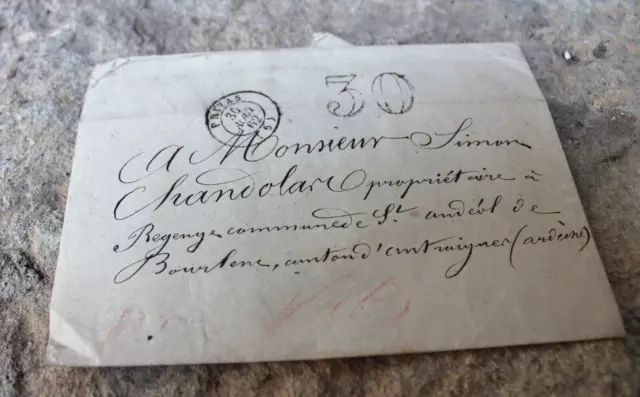 PRIVAS
30
AOUT
62
(6)
30
A Monsieur Simon
Chandolas propriétaire à
commune de St. andéol de
Bourlenc, canton d'antraigues (ardèche)